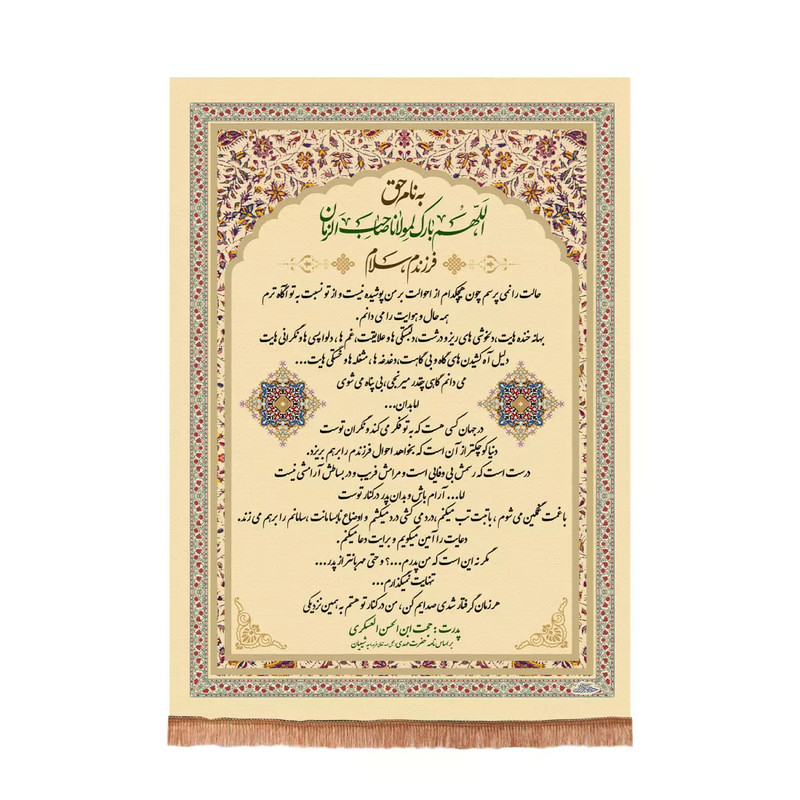 به نام حق
اللهم بارک لمولانا صاحب الزمان
فرزندم سلام
حالت را نمی پرسم چون هیچکدام از احوالت بر من پوشیده نیست و از تو نسبت به تو آگاه ترم
همه حال و هوایت را می دانم.
بهانه خنده هایت، دلخوشی های ریز و درشت، دلبستگی ها و علایقت، غم ها، دلواپسی ها و نگرانی هایت
دلیل آه کشیدن های گاه و بی گاهت، دغدغه ها، مشغله ها و خستگی هایت...
می دانم گاهی چقدر میرنجی، بی پناه می شوی
اما بدان...
در جهان کسی هست که به تو فکر می کند و نگران توست
دنیا کوچکتر از آن است که بخواهد احوال فرزندم را برهم بریزد.
درست است که رسمش بی وفایی است و مرامش فریب و در بساطش آرامشی نیست
اما... آرام باش و بدان پدر در کنار توست
با غمت غمگین می شوم، با تبت تب میکنم، درد می کشی درد میکشم و اوضاع نابسامانت، سامانم را برهم می زند.
دعایت را آمین میگویم و برایت دعا میکنم.
مگر نه این است که من پدرم...؟ و حتی مهربانتر از پدر...
تنهایت نمیگذارم...
هر زمان گرفتار شدی صدایم کن، من در کنار تو هستم به همین نزدیکی
پدرت: حجت ابن الحسن العسکری
بر اساس نامه حضرت مهدی به شیعیان